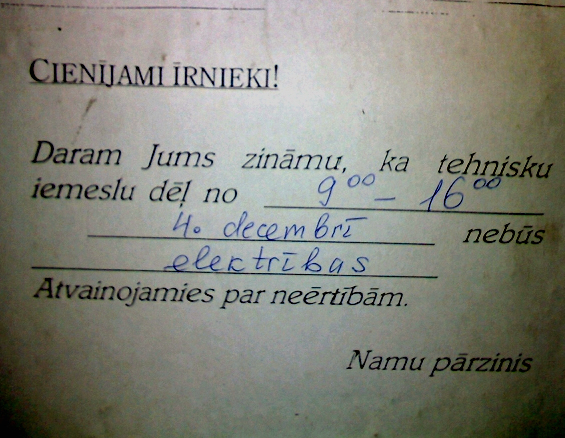 CIENĪJAMI ĪRNIEKI!
Daram Jums zināmu, ka tehnisku
iemeslu dēļ no 9⁰⁰ – 16⁰⁰
4. decembrī nebūs
elektrības
Atvainojamies par neērtībām.
Namu pārzinis